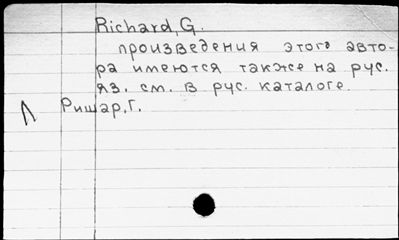 Richard, G.
произведения этого авто-
ра имеются также на рус.
яз. см. в рус. каталоге.
Ришар, Г.